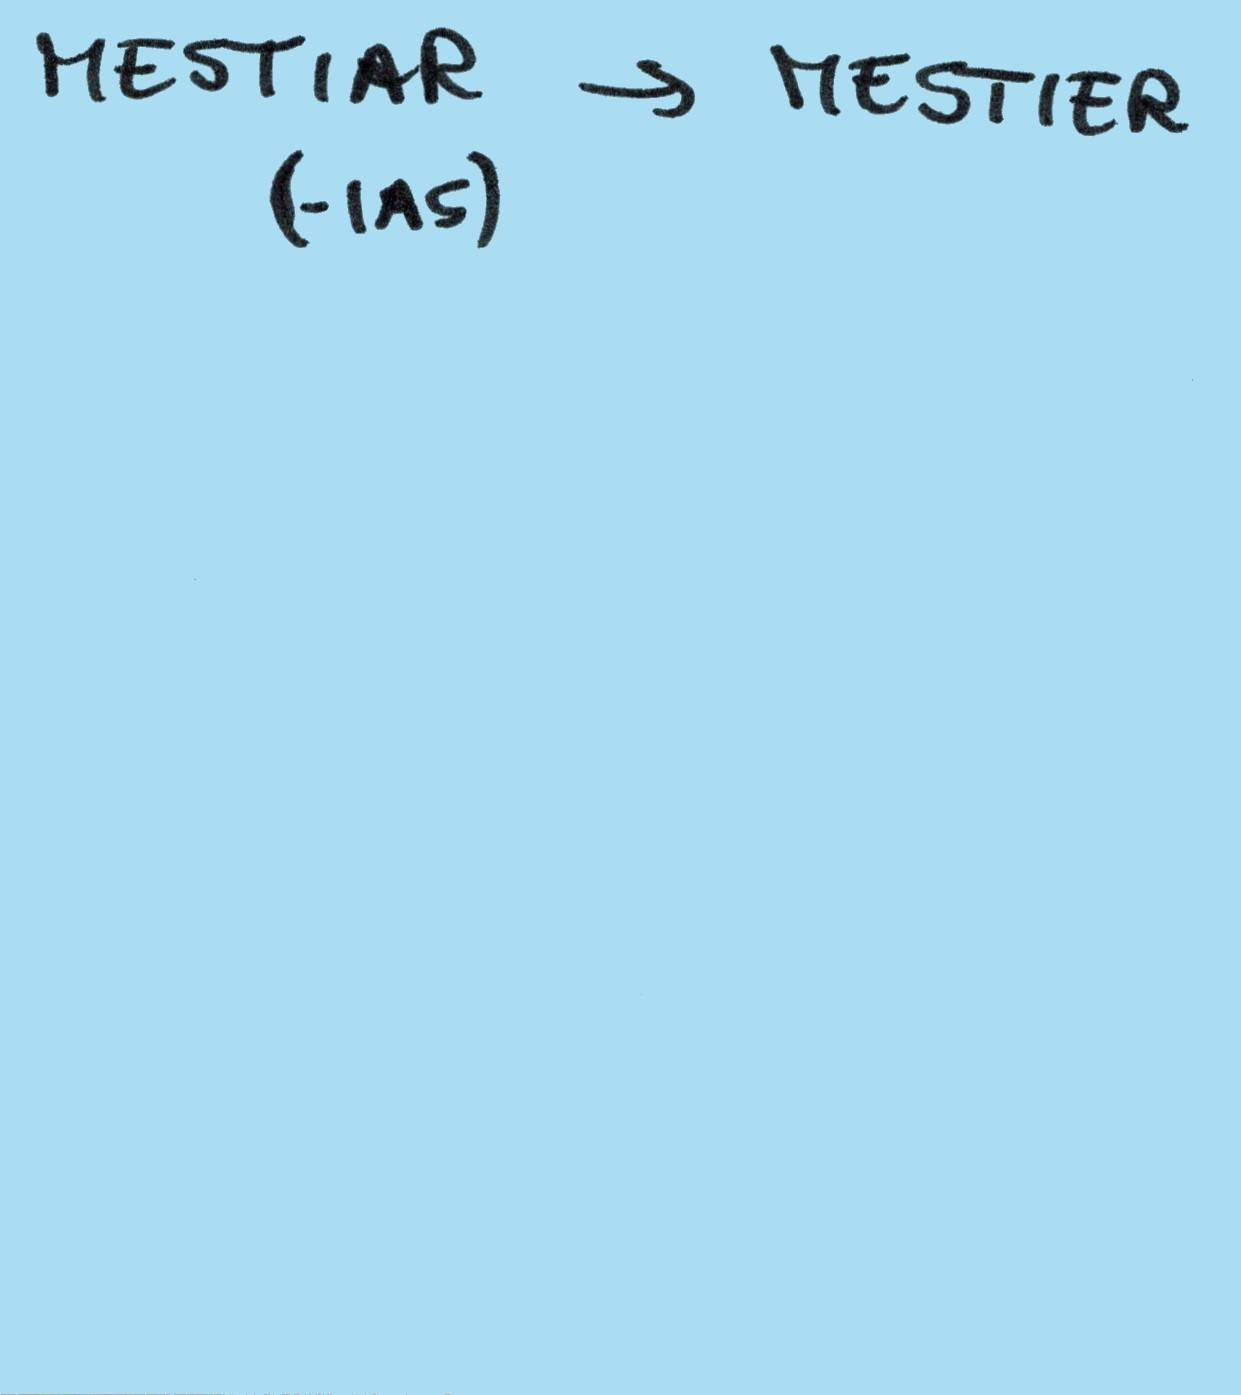 MESTIAR → MESTIER
(-IAS)